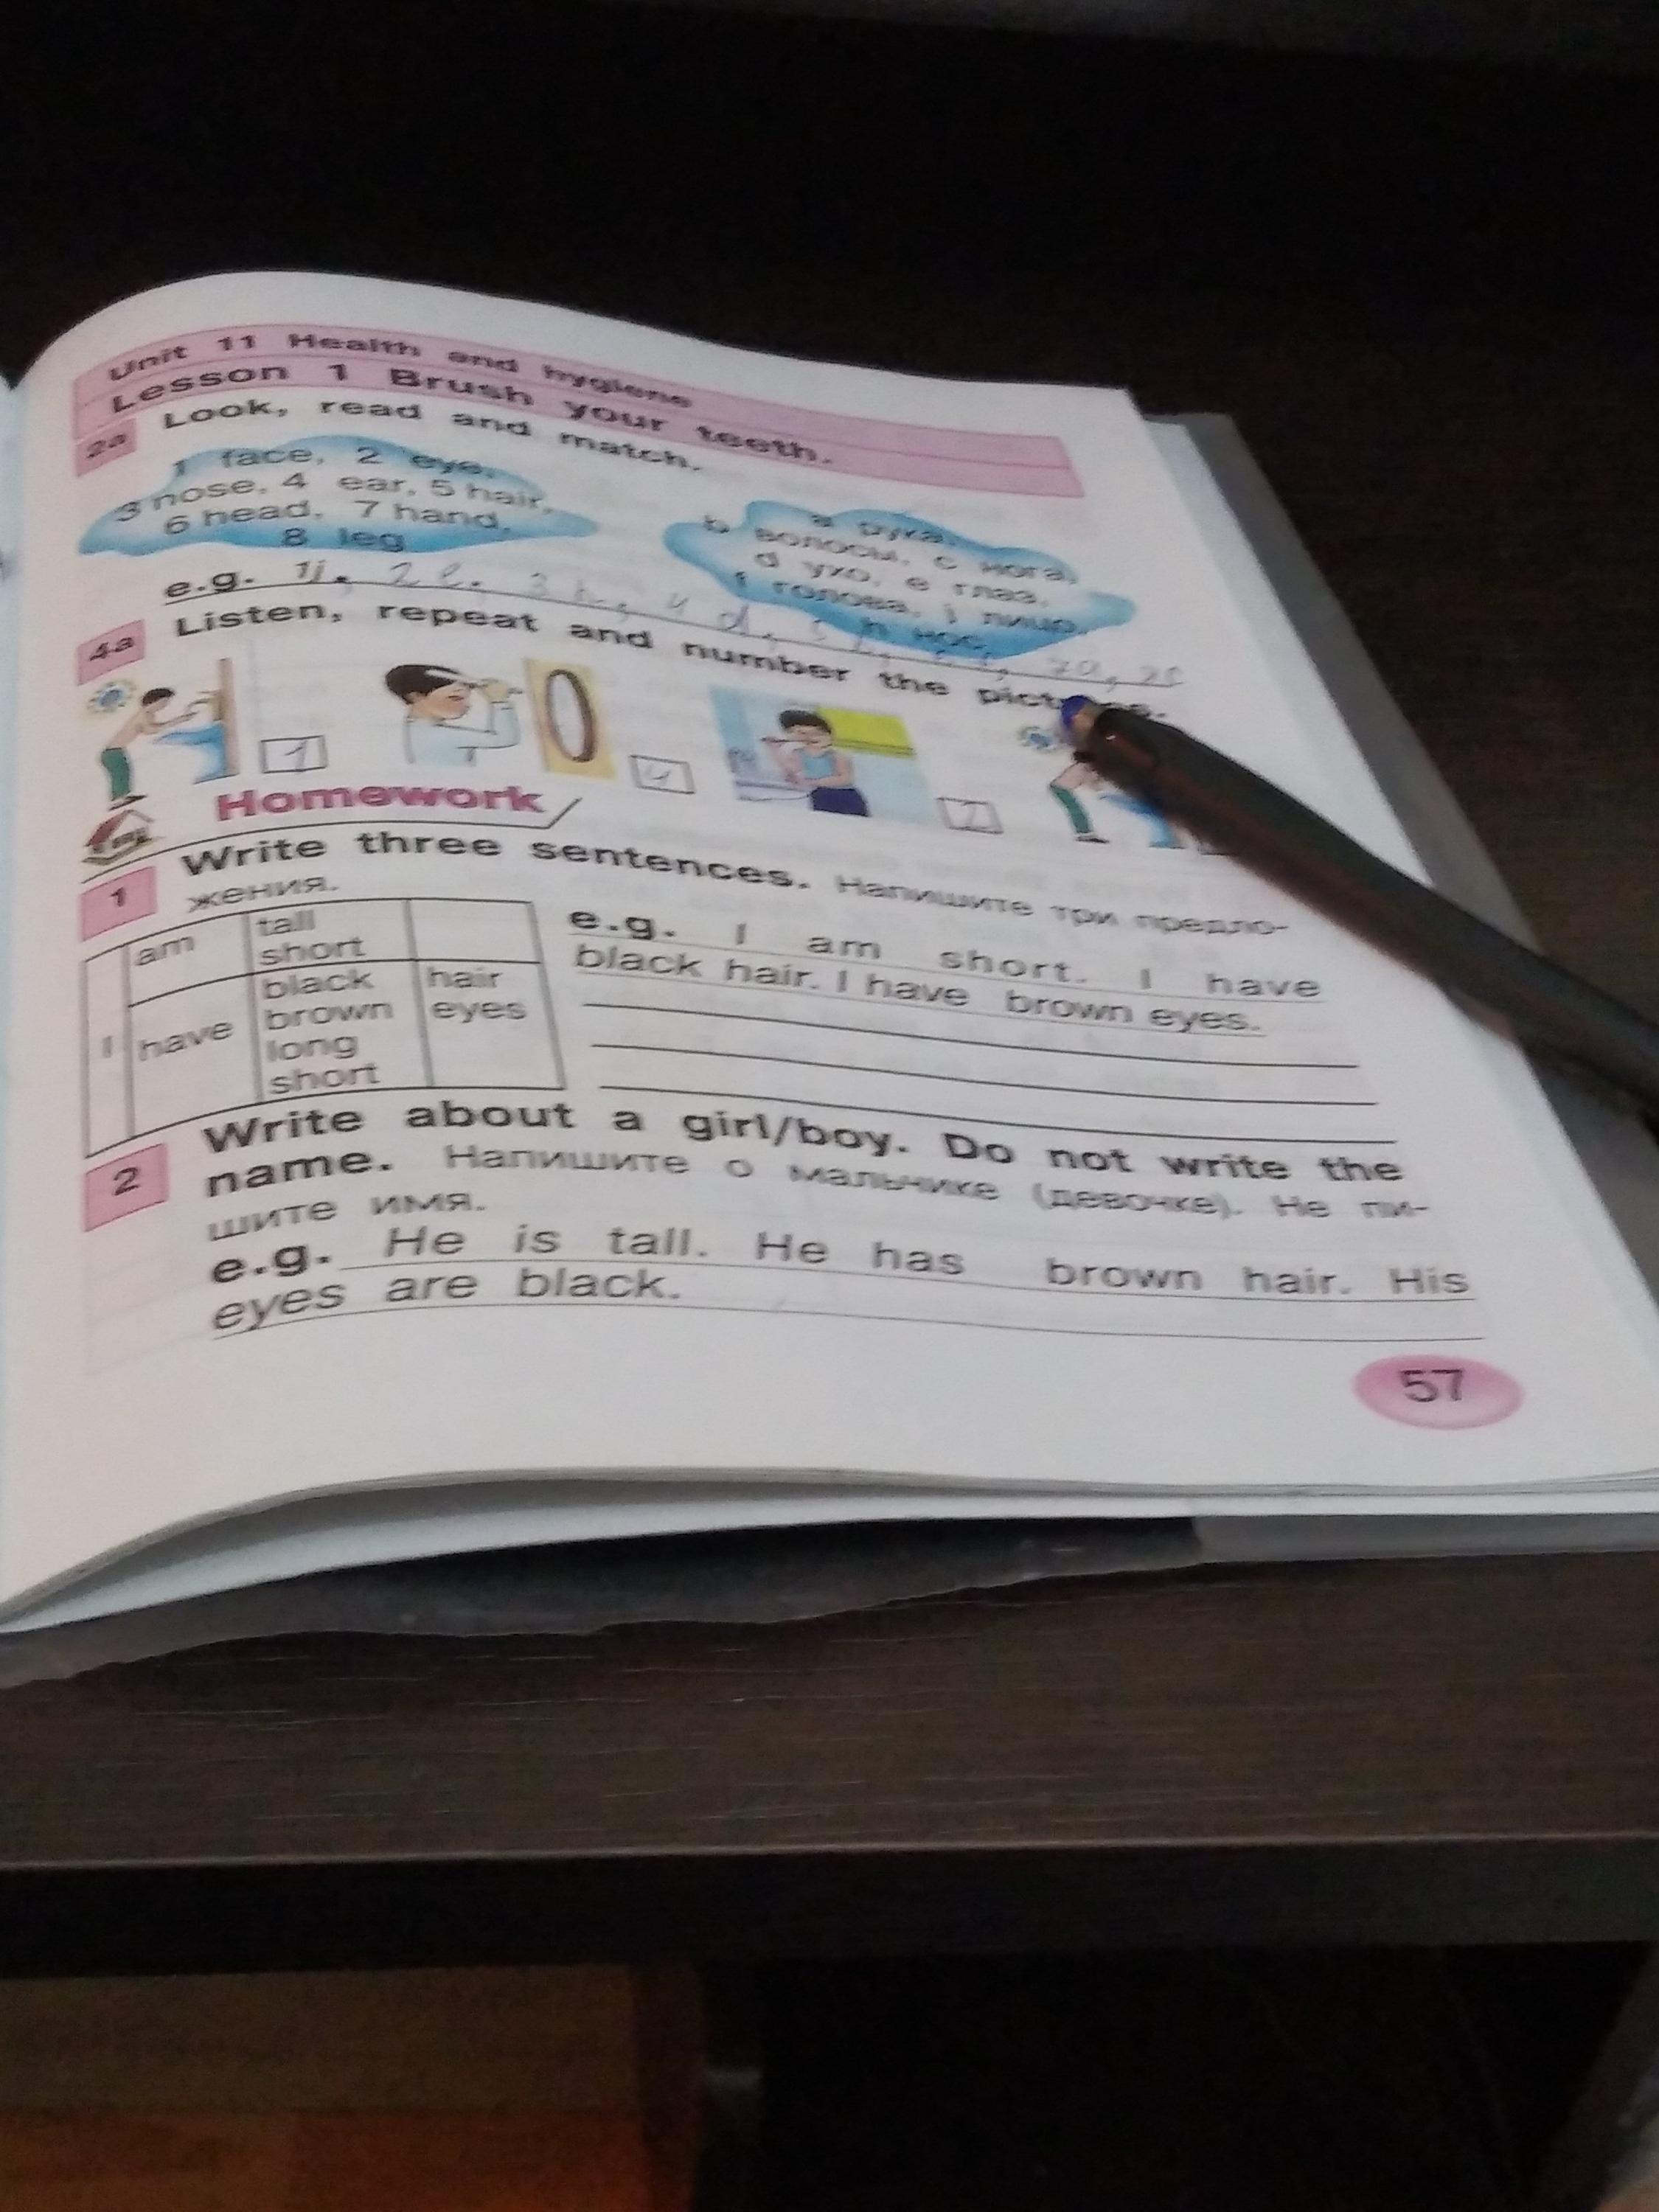 Unit 11 Health and hygiene
Lesson 1 Brush your teeth.
2a Look, read and match.
1 face, 2 eye,
3 nose, 4 ear, 5 hair,
6 head, 7 hand,
8 leg
a рука,
b волосы, c нога,
d ухо, e глаз,
f голова, j лицо,
h нос
e.g. 1j, 2e, 3h, 4d, 7a,
4a Listen, repeat and number the pictures.
1
4
Homework
1 Write three sentences. Напишите три предло-
жения.
I
am
tall
short
have
black
brown
long
short
hair
eyes
e.g. I am short. I have
black hair. I have brown eyes.
2 Write about a girl/boy. Do not write the
name. Напишите о мальчике (девочке). Не пи-
шите имя.
e.g. He is tall. He has brown hair. His
eyes are black.
57